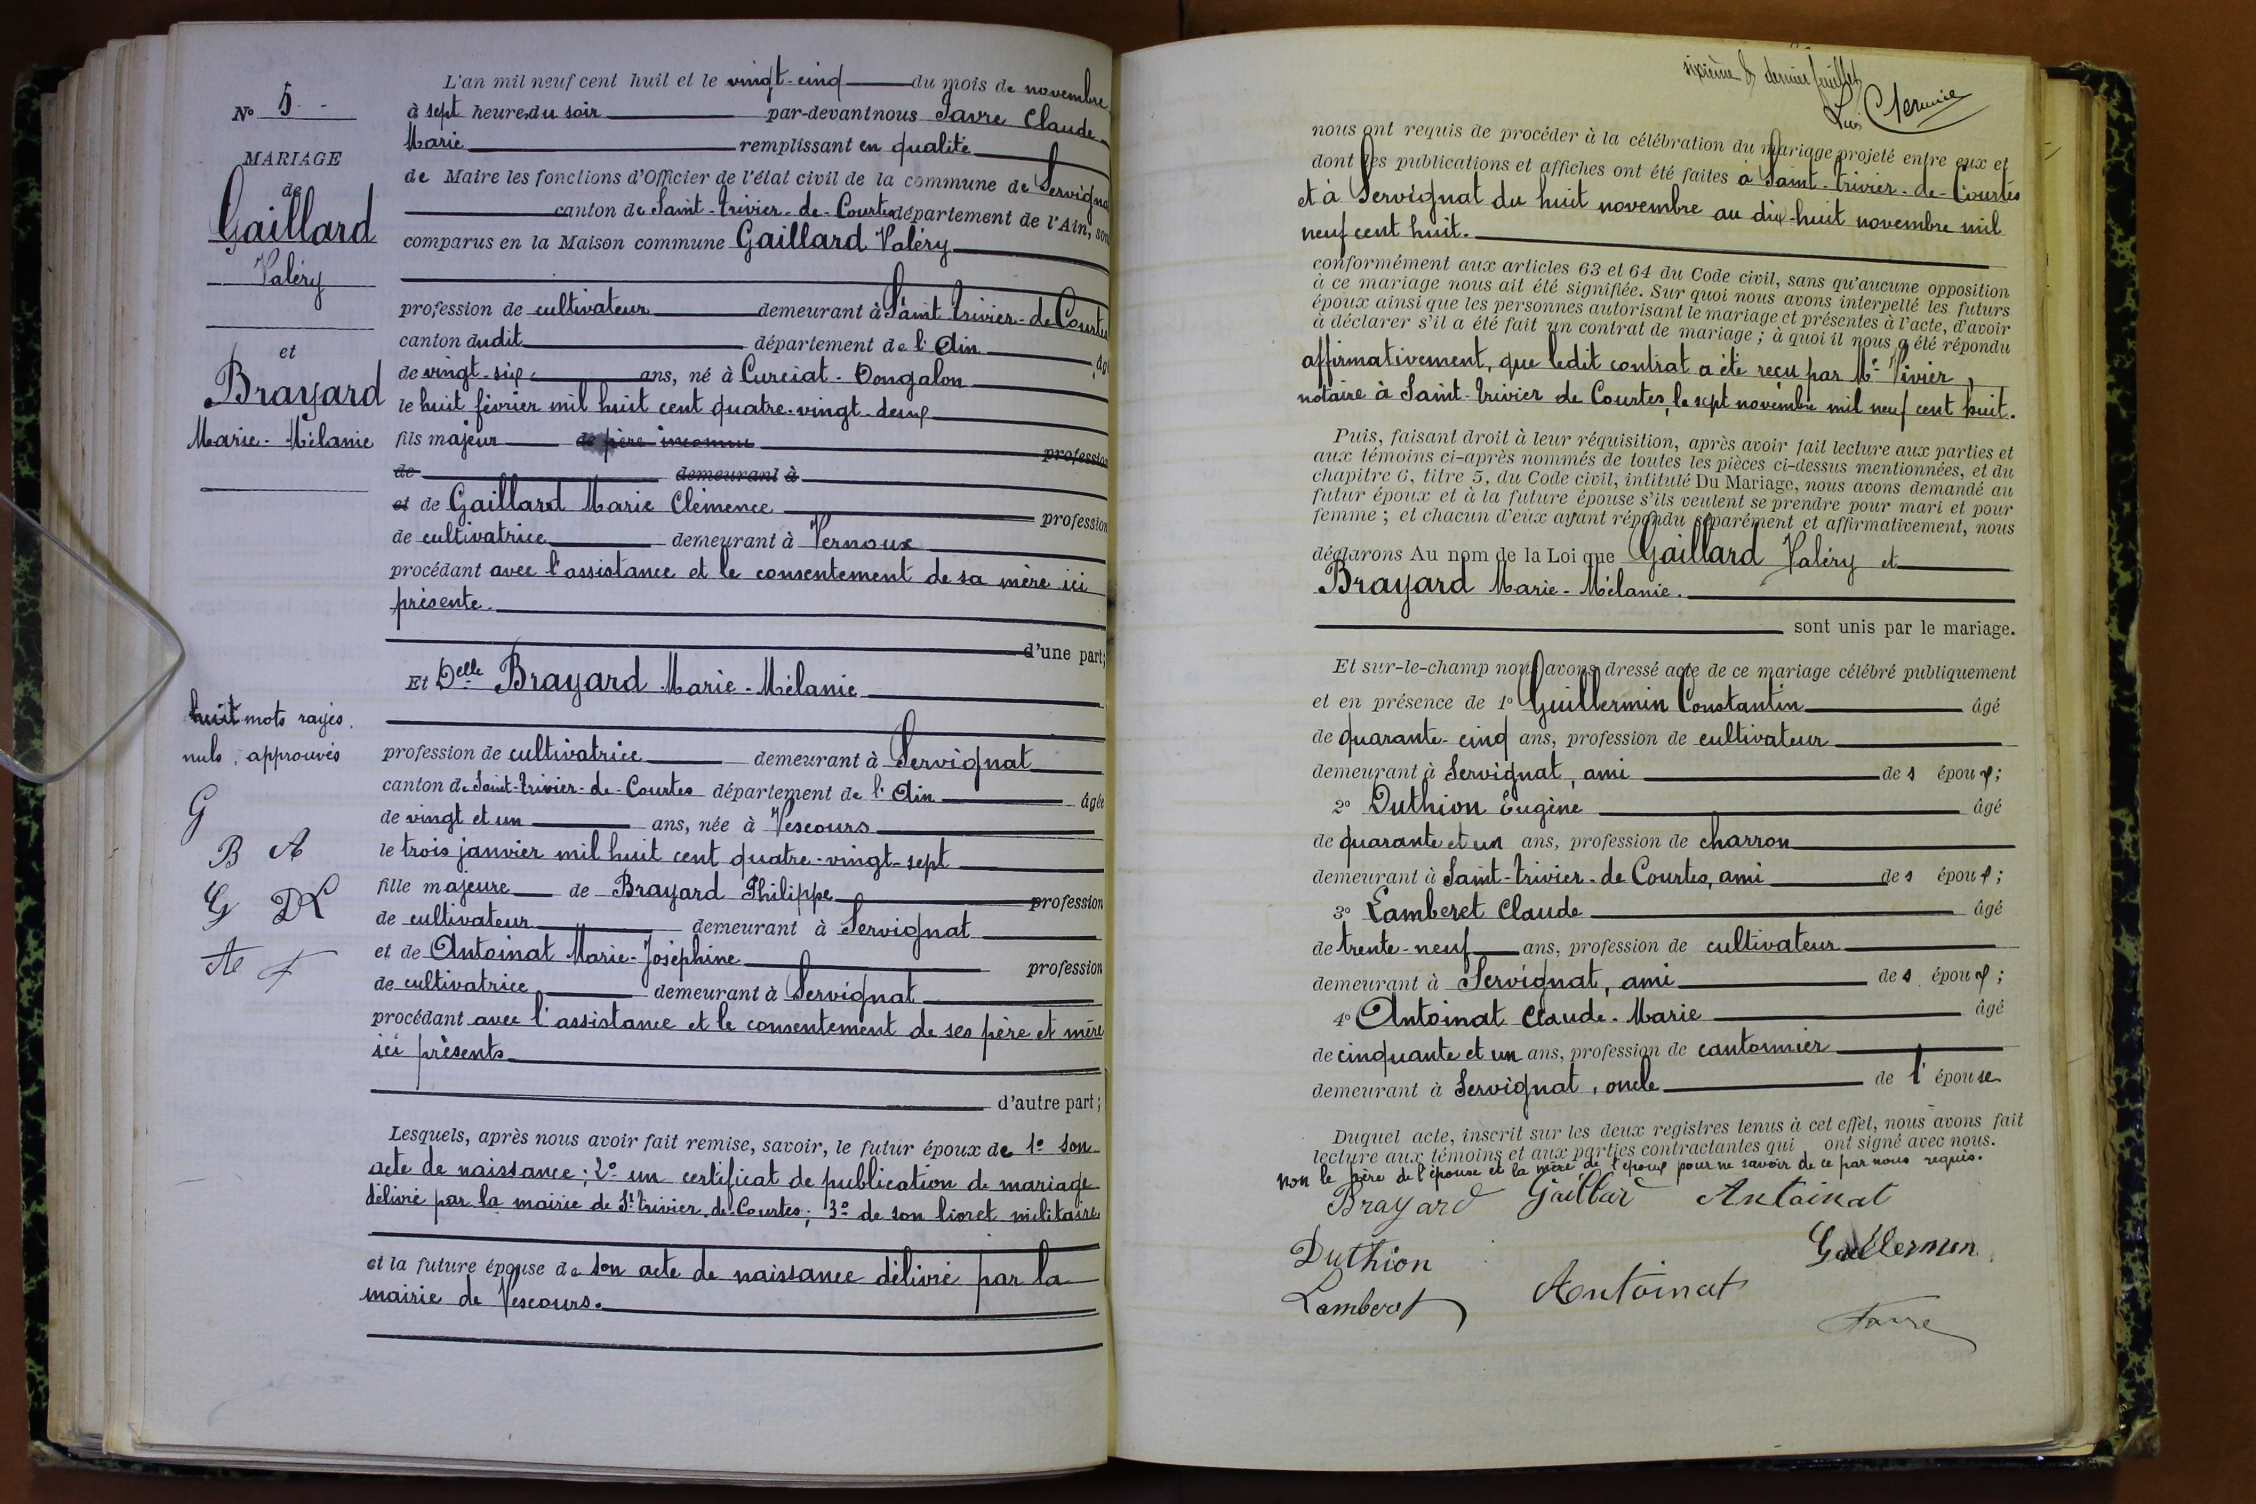 L'an mil neuf cent huit et le vingt-cinq du mois de novembre
No 5
à sept heures du soir par-devant nous Favre Claude
Marie remplissant en qualité
MARIAGE
de
Gaillard
Valéry
et
Brayard
Marie-Mélanie
de Maire les fonctions d'Officier de l'état civil de la commune de Servignat
canton de Saint-Trivier-de-Courtes département de l'Ain, sont
comparus en la Maison commune Gaillard Valéry
profession de cultivateur demeurant à Saint Trivier-de Courtes
canton dudit département de l'Ain, âgé
de vingt-six ans, né à Curciat-Dongalon
le huit février mil huit cent quatre-vingt-deux
fils majeur de père inconnu profession
de demeurant à
et de Gaillard Marie Clémence profession
de cultivatrice demeurant à Vernoux
procédant avec l'assistance et le consentement de sa mère ici
présente.
d'une part;
Et Delle Brayard Marie-Mélanie
profession de cultivatrice demeurant à Servignat
canton de Saint-Trivier-de-Courtes département de l'Ain âgée
de vingt et un ans, née à Vescours
le trois janvier mil huit cent quatre-vingt-sept
fille majeure de Brayard Philippe profession
de cultivateur demeurant à Servignat
et de Antoinat Marie-Joséphine profession
de cultivatrice demeurant à Servignat
procédant avec l'assistance et le consentement de ses père et mère
ici présents
d'autre part;
huit mots rayés
nuls approuvés
G
B A
G DL
At F
Lesquels, après nous avoir fait remise, savoir, le futur époux de 1º son
acte de naissance; 2º un certificat de publication de mariage
délivré par la mairie de St Trivier-de-Courtes; 3º de son livret militaire
et la future épouse de son acte de naissance délivré par la
mairie de Vescours.
sixième & dernier feuillet
nous ont requis de procéder à la célébration du mariage projeté entre eux et
dont les publications et affiches ont été faites à Saint-Trivier-de-Courtes
et à Servignat du huit novembre au dix-huit novembre mil
neuf cent huit.
conformément aux articles 63 et 64 du Code civil, sans qu'aucune opposition
à ce mariage nous ait été signifiée. Sur quoi nous avons interpellé les futurs
époux ainsi que les personnes autorisant le mariage et présentes à l'acte, d'avoir
à déclarer s'il a été fait un contrat de mariage; à quoi il nous a été répondu
affirmativement, que ledit contrat a été reçu par Me Vivier,
notaire à Saint-Trivier de Courtes, le sept novembre mil neuf cent huit.
Puis, faisant droit à leur réquisition, après avoir fait lecture aux parties et
aux témoins ci-après nommés de toutes les pièces ci-dessus mentionnées, et du
chapitre 6, titre 5, du Code civil, intitulé Du Mariage, nous avons demandé au
futur époux et à la future épouse s'ils veulent se prendre pour mari et pour
femme; et chacun d'eux ayant répondu séparément et affirmativement, nous
déclarons Au nom de la Loi que Gaillard Valéry et
Brayard Marie-Mélanie.
sont unis par le mariage.
Et sur-le-champ nous avons dressé acte de ce mariage célébré publiquement
et en présence de 1º Guillermin Constantin âgé
de quarante-cinq ans, profession de cultivateur
demeurant à Servignat, ami des époux;
2º Duthion Eugène âgé
de quarante et un ans, profession de charron
demeurant à Saint-Trivier-de Courtes, ami des époux;
3º Lamberet Claude âgé
de trente-neuf ans, profession de cultivateur
demeurant à Servignat, ami des époux;
4º Antoinat Claude-Marie âgé
de cinquante et un ans, profession de cantonnier
demeurant à Servignat, oncle de l'épouse
Duquel acte, inscrit sur les deux registres tenus à cet effet, nous avons fait
lecture aux témoins et aux parties contractantes qui ont signé avec nous.
non le père de l'épouse et la mère de l'époux pour ne savoir de ce par nous requis.
Brayard Gaillard Antoinat
Duthion Guillermin
Lamberet Antoinat
Favre